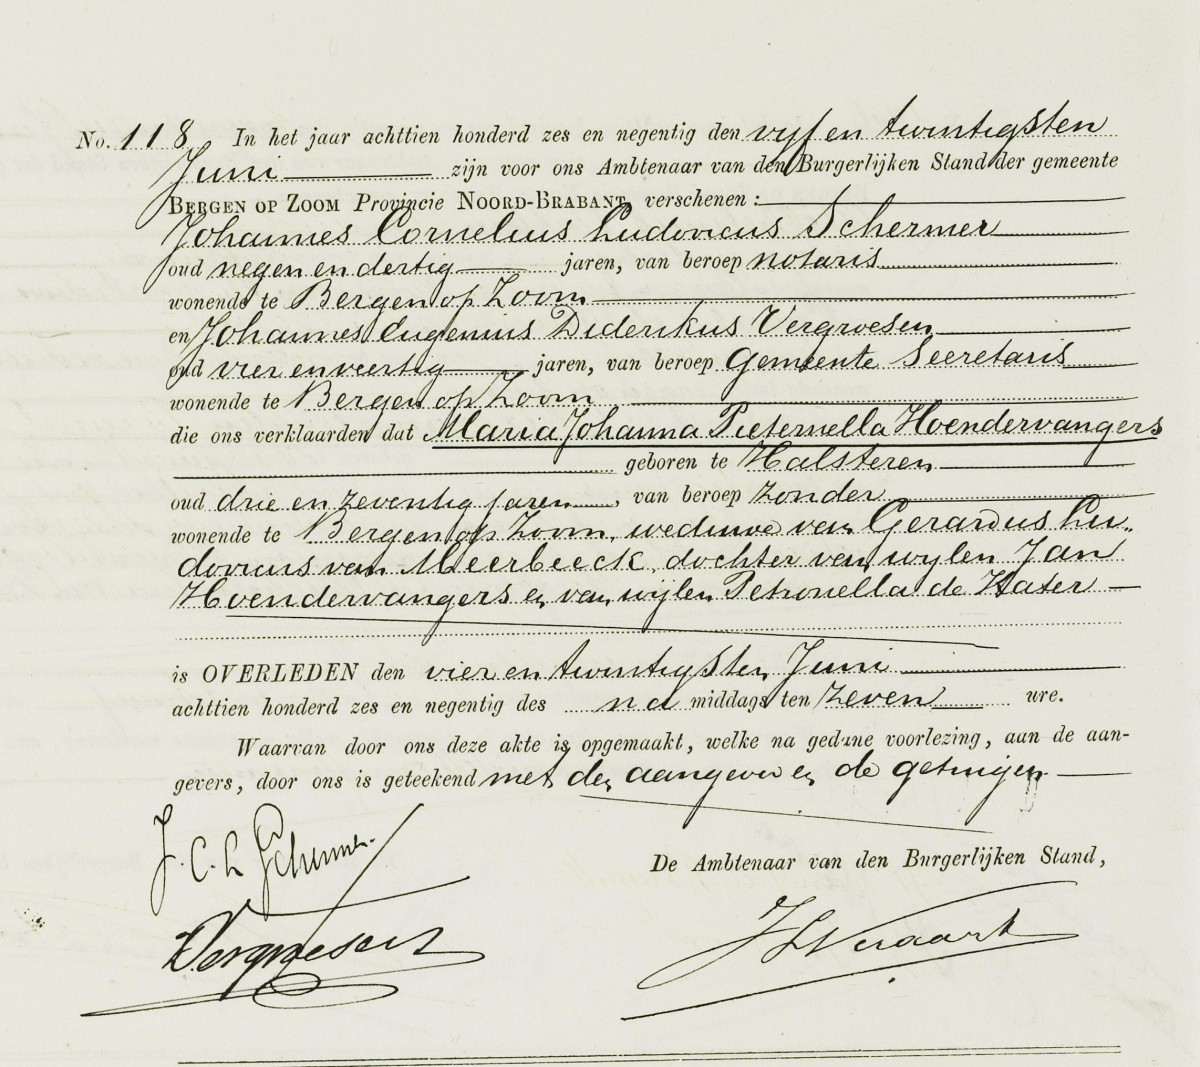 No. 118 In het jaar achttien honderd zes en negentig den vijf en twintigsten
Juni zijn voor ons Ambtenaar van den Burgerlijken Stand der gemeente
BERGEN OP ZOOM Provincie NOORD-BRABANT, verschenen :
Johannes Cornelius Ludovicus Schermer
oud negen en dertig jaren, van beroep notaris
wonende te Bergen op Zoom
en Johannes Eugenius Diderikus Vergroesen
oud vier en veertig jaren, van beroep Gemeente Secretaris
wonende te Bergen op Zoom
die ons verklaarden dat Maria Johanna Pieternella Hoendervangers
geboren te Halsteren
oud drie en zeventig jaren, van beroep zonder
wonende te Bergen op Zoom, weduwe van Gerardus Lu-
dovicus van Meerbeeck, dochter van wijlen Jan
Hoendervangers en van wijlen Petronella de Hater
is OVERLEDEN den vier en twintigsten Juni
achttien honderd zes en negentig des na middags ten zeven ure.
Waarvan door ons deze akte is opgemaakt, welke na gedane voorlezing, aan de aan-
gevers, door ons is geteekend met den aangever en de getuigen
J. C. L Schermer.
De Ambtenaar van den Burgerlijken Stand,
Vergroesen